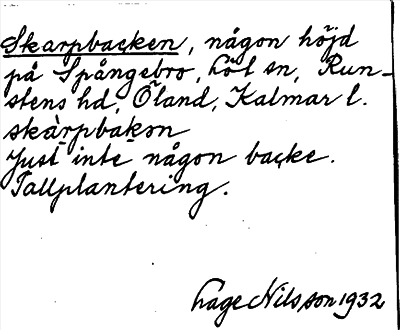 Skarpbacken, någon höjd
på Spångebro, Löt sn, Run-
stens hd, Öland, Kalmar l.
skàrpbakon
Just inte någon backe.
Tallplantering.
Lage Nilsson 1932